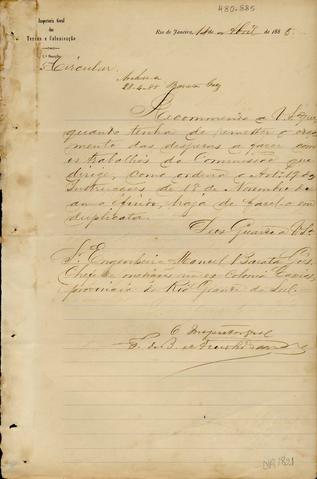 480.885
Inspetoria Geral
das
Terras e Colonisação
Rio de Janeiro, 14 de Abril de 1885.
Circular
28-4-85 Barata Goes
Recommendo a V. Sª que,
quando tenha de remetter o orça-
mento das despezas a fazer com
os trabalhos da Commissão que
dirige, como ordena o Artº 19 das
Instrucções de 18 de Novembro do
anno findo, haja de fazel-o em
duplicata.
Deus Guarde a V. Sª
Sr. Engenheiro Manoel Barata Góes,
Chefe
na ex Colonia Caxias,
provincia do Rio Grande do Sul.
O Inspector geral
F. de B. e
NA 1821